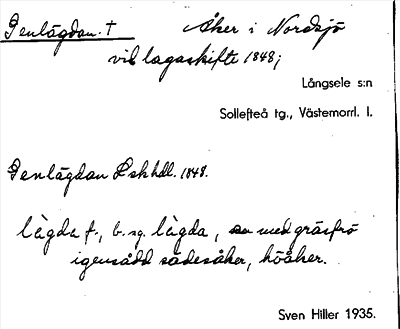 Genlägdan. † Åker i Nordsjö
vid lagaskifte 1848;
Långsele s:n
Sollefteå tg., Västernorrl. l.
Genlägdan Lskhdl. 1848.
lägda f., b. sg. lägda, med gräsfrö
igensådd sädesåker, höåker.
Sven Hiller 1935.